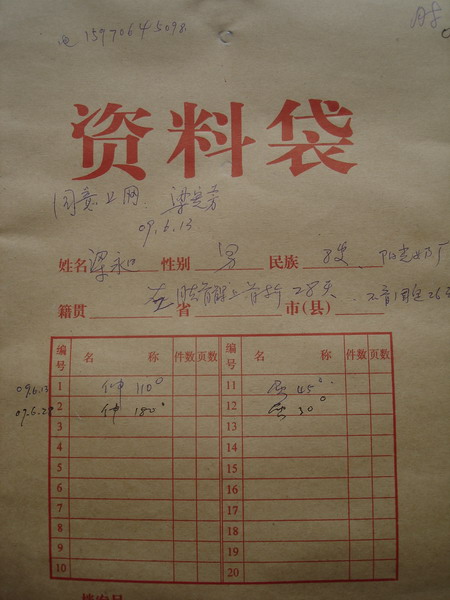 电 15970645098
资料袋
同意上网. 梁宽芳
09.6.13
姓名 梁永和 性别 男 民族 8岁
籍贯 左肱骨髁上骨折28天 省 市(县)
编号 名称 件数 页数 编号 名称 件数 页数
09.6.13 1 伸 110° 11 屈 45°
09.6.28 2 伸 180° 12 屈 30°
3 13
4 14
5 15
6 16
7 17
8 18
9 19
10 20